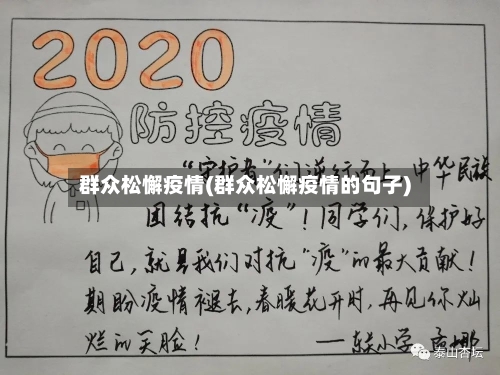 2020
防控疫情
"守护者"们逆行而上,中华民族
群众松懈疫情(群众松懈疫情的句子)
团结抗"疫"!同学们,保护好
自己,就是我们对抗"疫"的最大贡献!
期盼疫情褪去,春暖花开时,再见你灿
烂的笑脸!
——东关小学
泰山杏坛